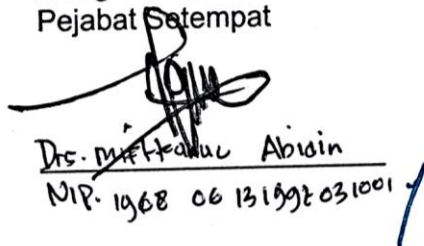 Pejabat Setempat
Drs. Abidin
NIP. 1968 06 13 1992 031001